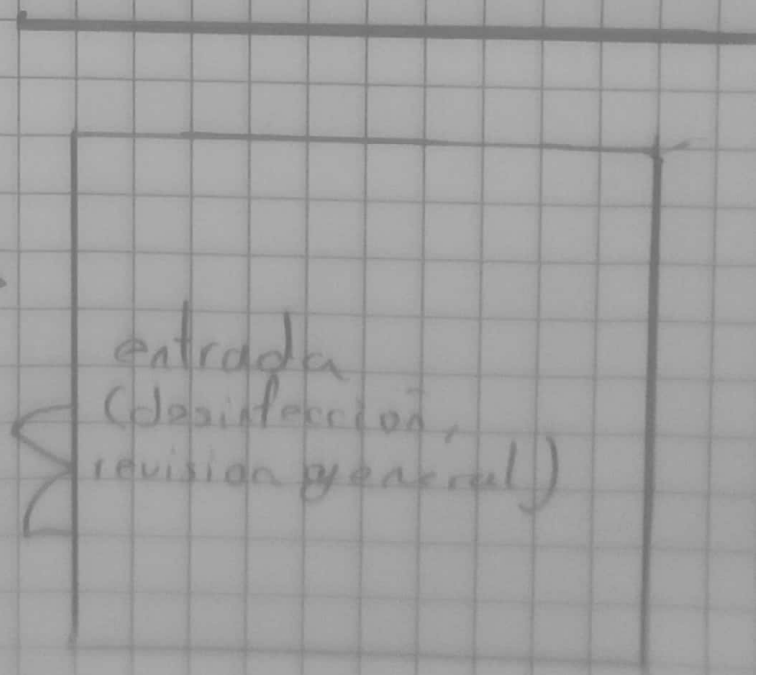 entrada
(desinfección,
revision general)